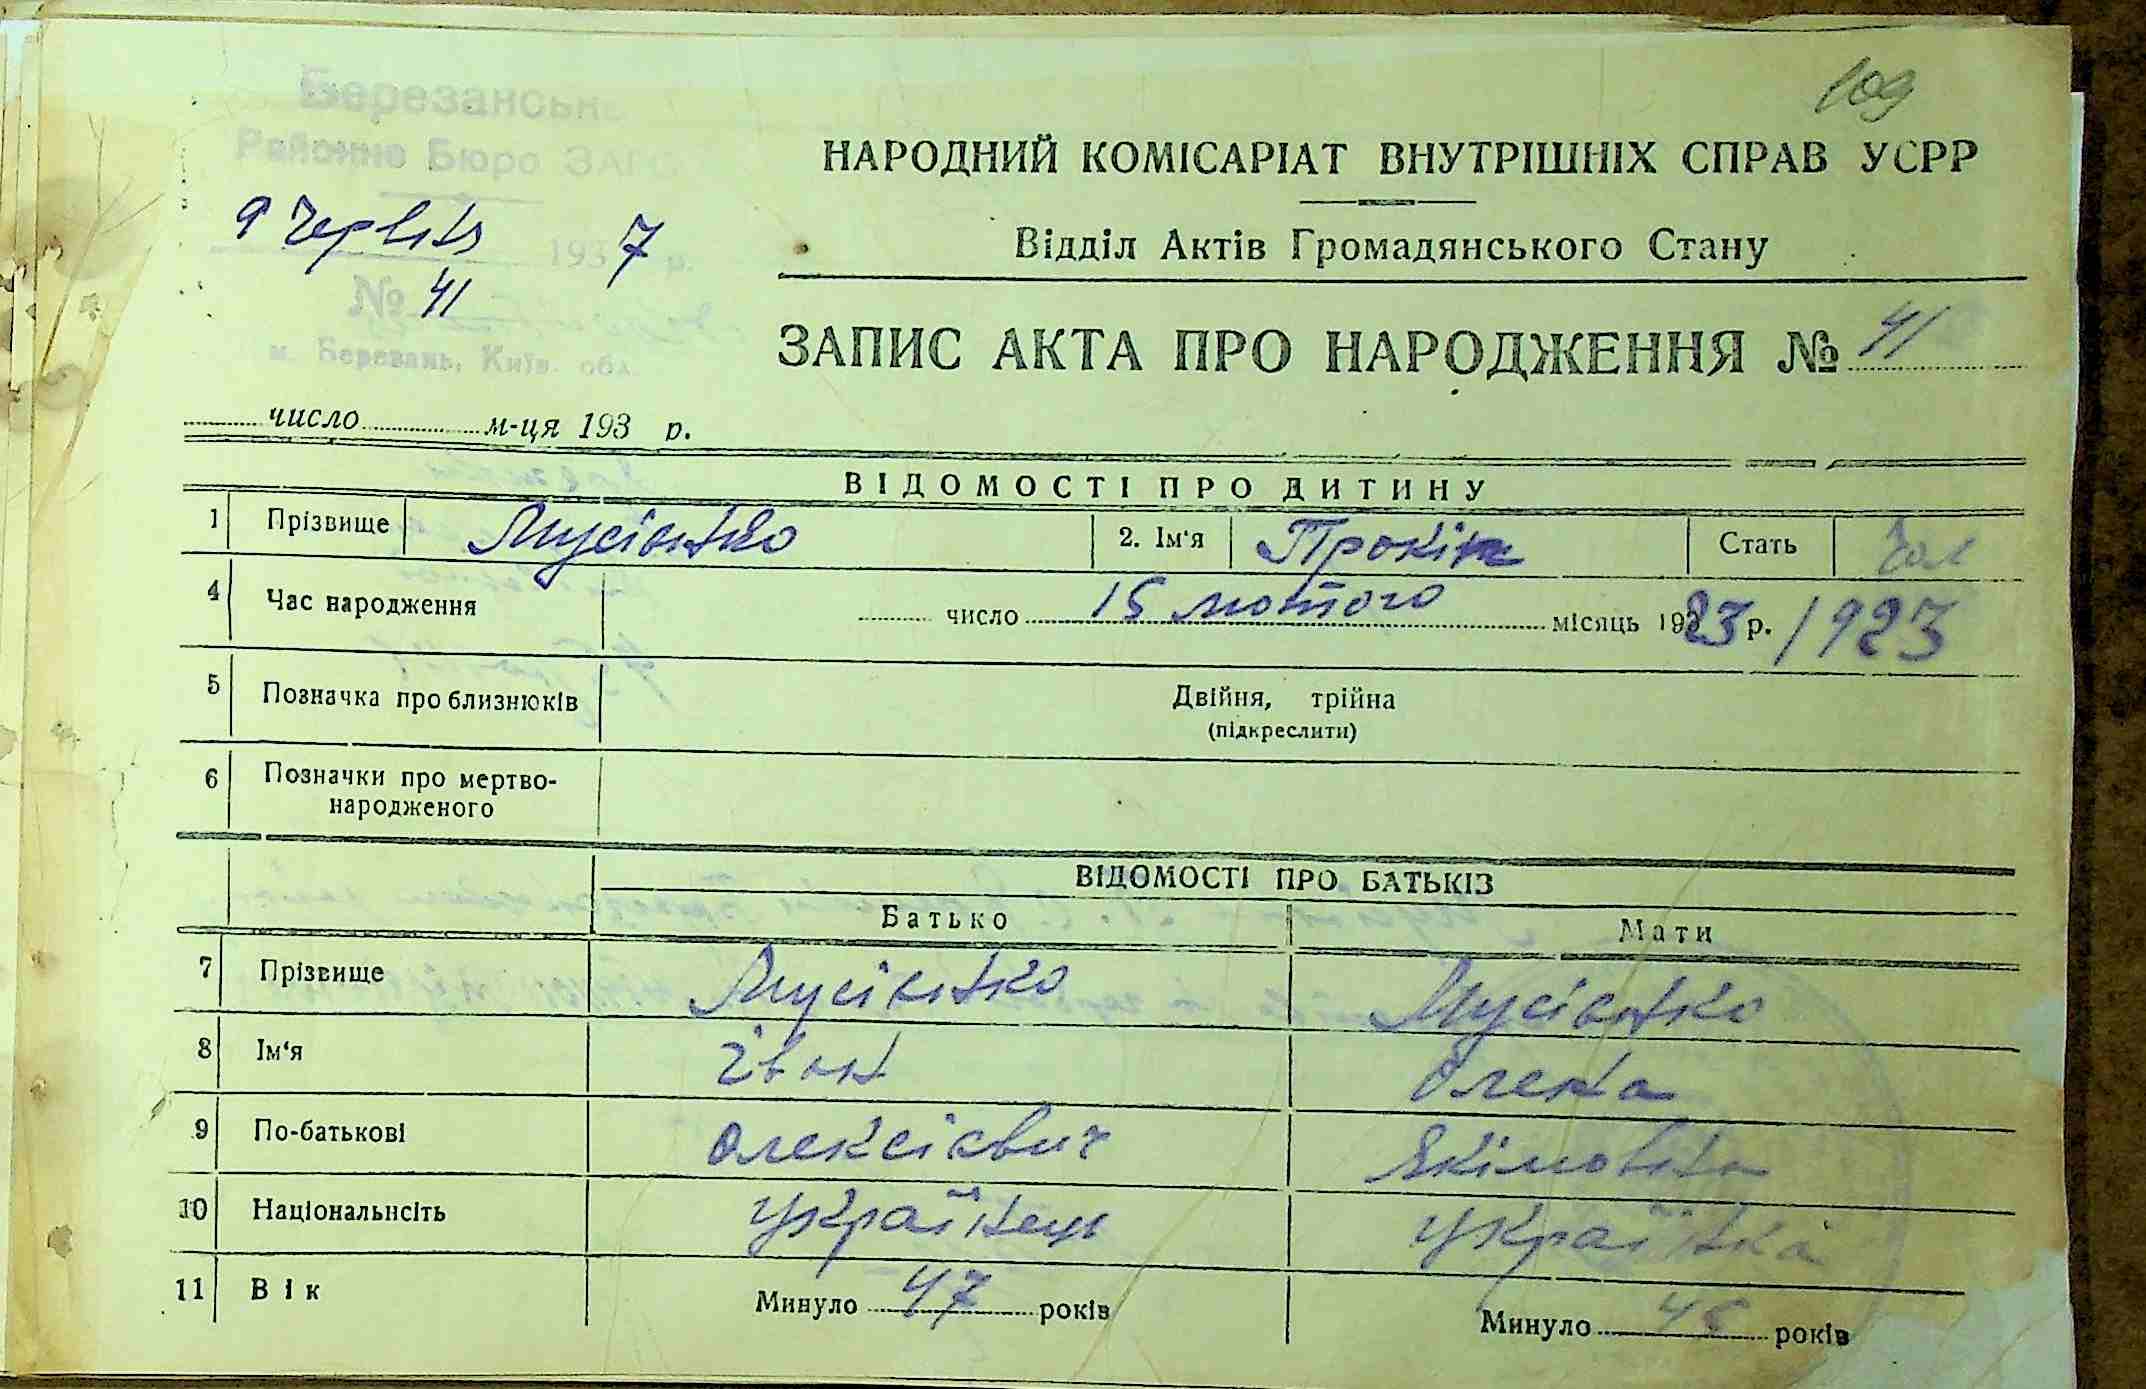 109
Березанськ
Районне Бюро ЗАГС
9 червня 1937 р.
№ 41
м. Березань, Київ. обл.
НАРОДНИЙ КОМІСАРІАТ ВНУТРІШНІХ СПРАВ УСРР
Відділ Актів Громадянського Стану
ЗАПИС АКТА ПРО НАРОДЖЕННЯ № 41
число м-ця 193 р.
ВІДОМОСТІ ПРО ДИТИНУ
1 Прізвище Мусієнко 2. Ім'я Прокіп Стать Чол
4 Час народження число 15 лютого місяць 1923 р. / 1923
5 Позначка про близнюків Двійня, трійна
(підкреслити)
6 Позначки про мертво-
народженого
ВІДОМОСТІ ПРО БАТЬКІЗ
Батько Мати
7 Прізвище Мусієнко Мусієнко
8 Ім'я Іван Олена
9 По-батькові Олексієвич Якімовна
10 Національнсіть Українець Українка
11 Вік Минуло 47 років Минуло років